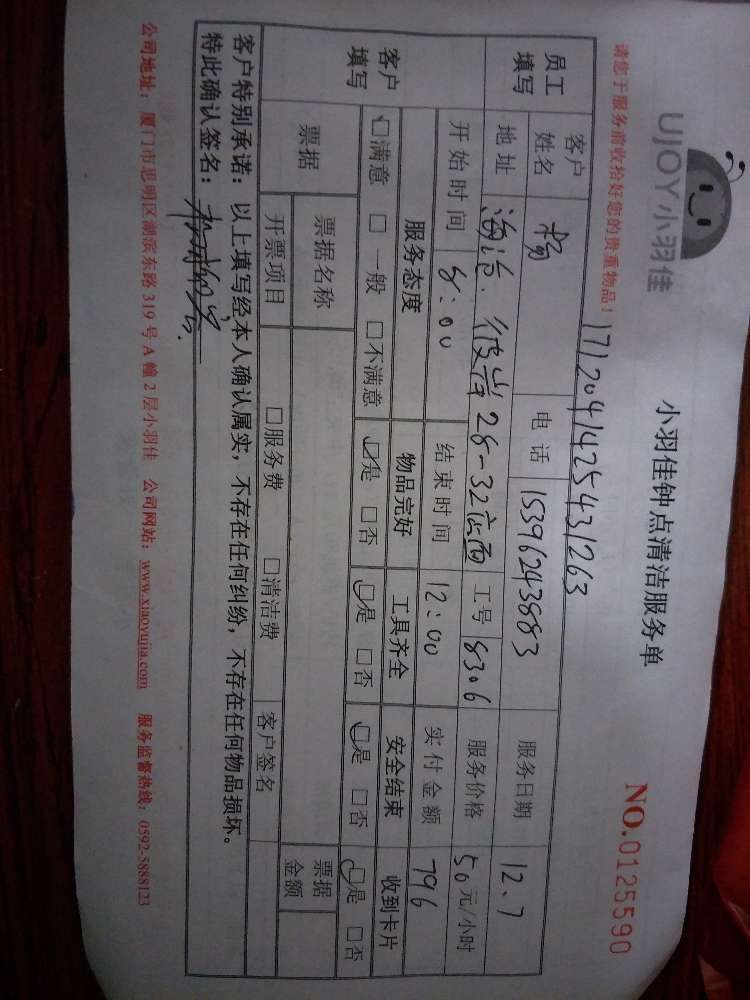 UJOY小羽佳
小羽佳钟点清洁服务单
NO.0125590
请您于服务前收拾好您的贵重物品！
1712041425431263
员工填写 客户姓名 杨 电话 15396243883 服务日期 12.7
地址 海沧．彼岸28-32店面 工号 8306 服务价格 50元/小时
开始时间 8:00 结束时间 12:00 实付金额 796
客户填写 服务态度 物品完好 工具齐全 安全结束 收到卡片
□满意 □一般 □不满意 □是 □否 □是 □否 □是 □否 □是 □否
票据 票据名称 票据金额
开票项目 □服务费 □清洁费 客户签名
客户特别承诺：以上填写经本人确认属实，不存在任何纠纷，不存在任何物品损坏。
特此确认签名：
公司地址：厦门市思明区湖滨东路319号A幢2层小羽佳 公司网站：www.xiaoyujia.com 服务监督热线：0592-5888123